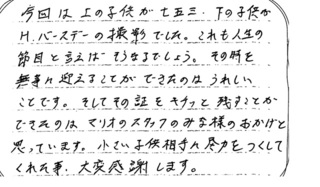 今回は上の子供が七五三、下の子供が
H.バースデーの撮影でした。これも人生の
節目と言えばそうなるでしょう。その時を
無事に迎えることができたのはうれしい
ことです。そしてその証をキチッと残すことが
できたのはマリオのスタッフのみな様のおかげと
思っています。小さい子供相手に尽力をつくして
くれた事、大変感謝します。